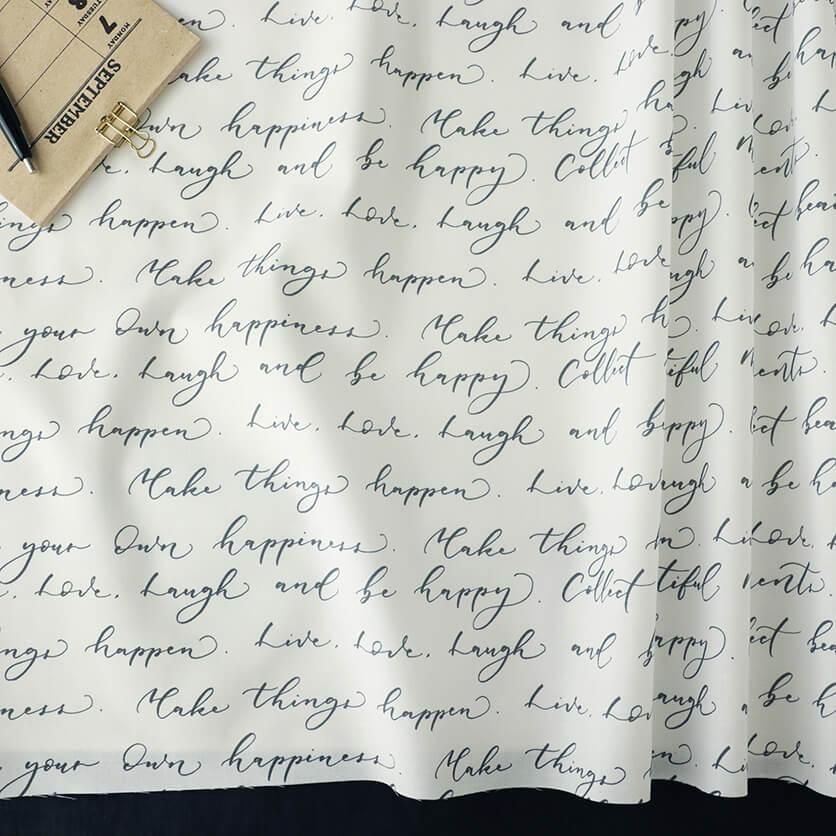 Live. Love. Laugh and happy.
Make things happen. Live. Love.
own happiness. Make things
Laugh and be happy. Collect beautiful
things happen. Live. Love. Laugh and be happy.
Make things happen. Live. Love. Laugh
your own happiness. Make things
Love. Laugh and be happy. Collect
happen. Live. Love. Laugh and
Make things happen. Live. Love.
your own happiness. Make things
Love. Laugh and be happy. Collect
happen. Live. Love. Laugh and
Make things happen. Live.
your own happiness. Make things
SEPTEMBER
MONDAY
7
TUESDAY
8